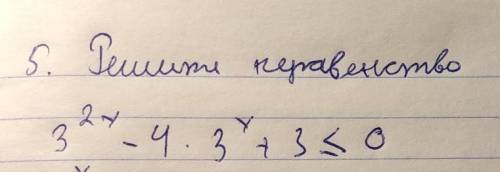 5. Решити неравенство
3^{2x} - 4 · 3^x + 3 ≤ 0